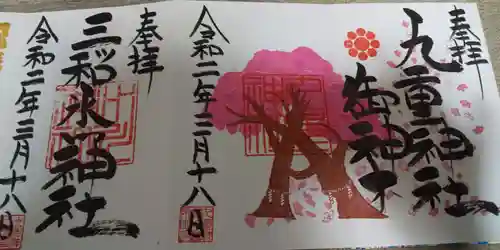 奉拝
九重神社
御神木
令和二年三月十八日
奉拝
三峀水神社
令和二年三月十八日